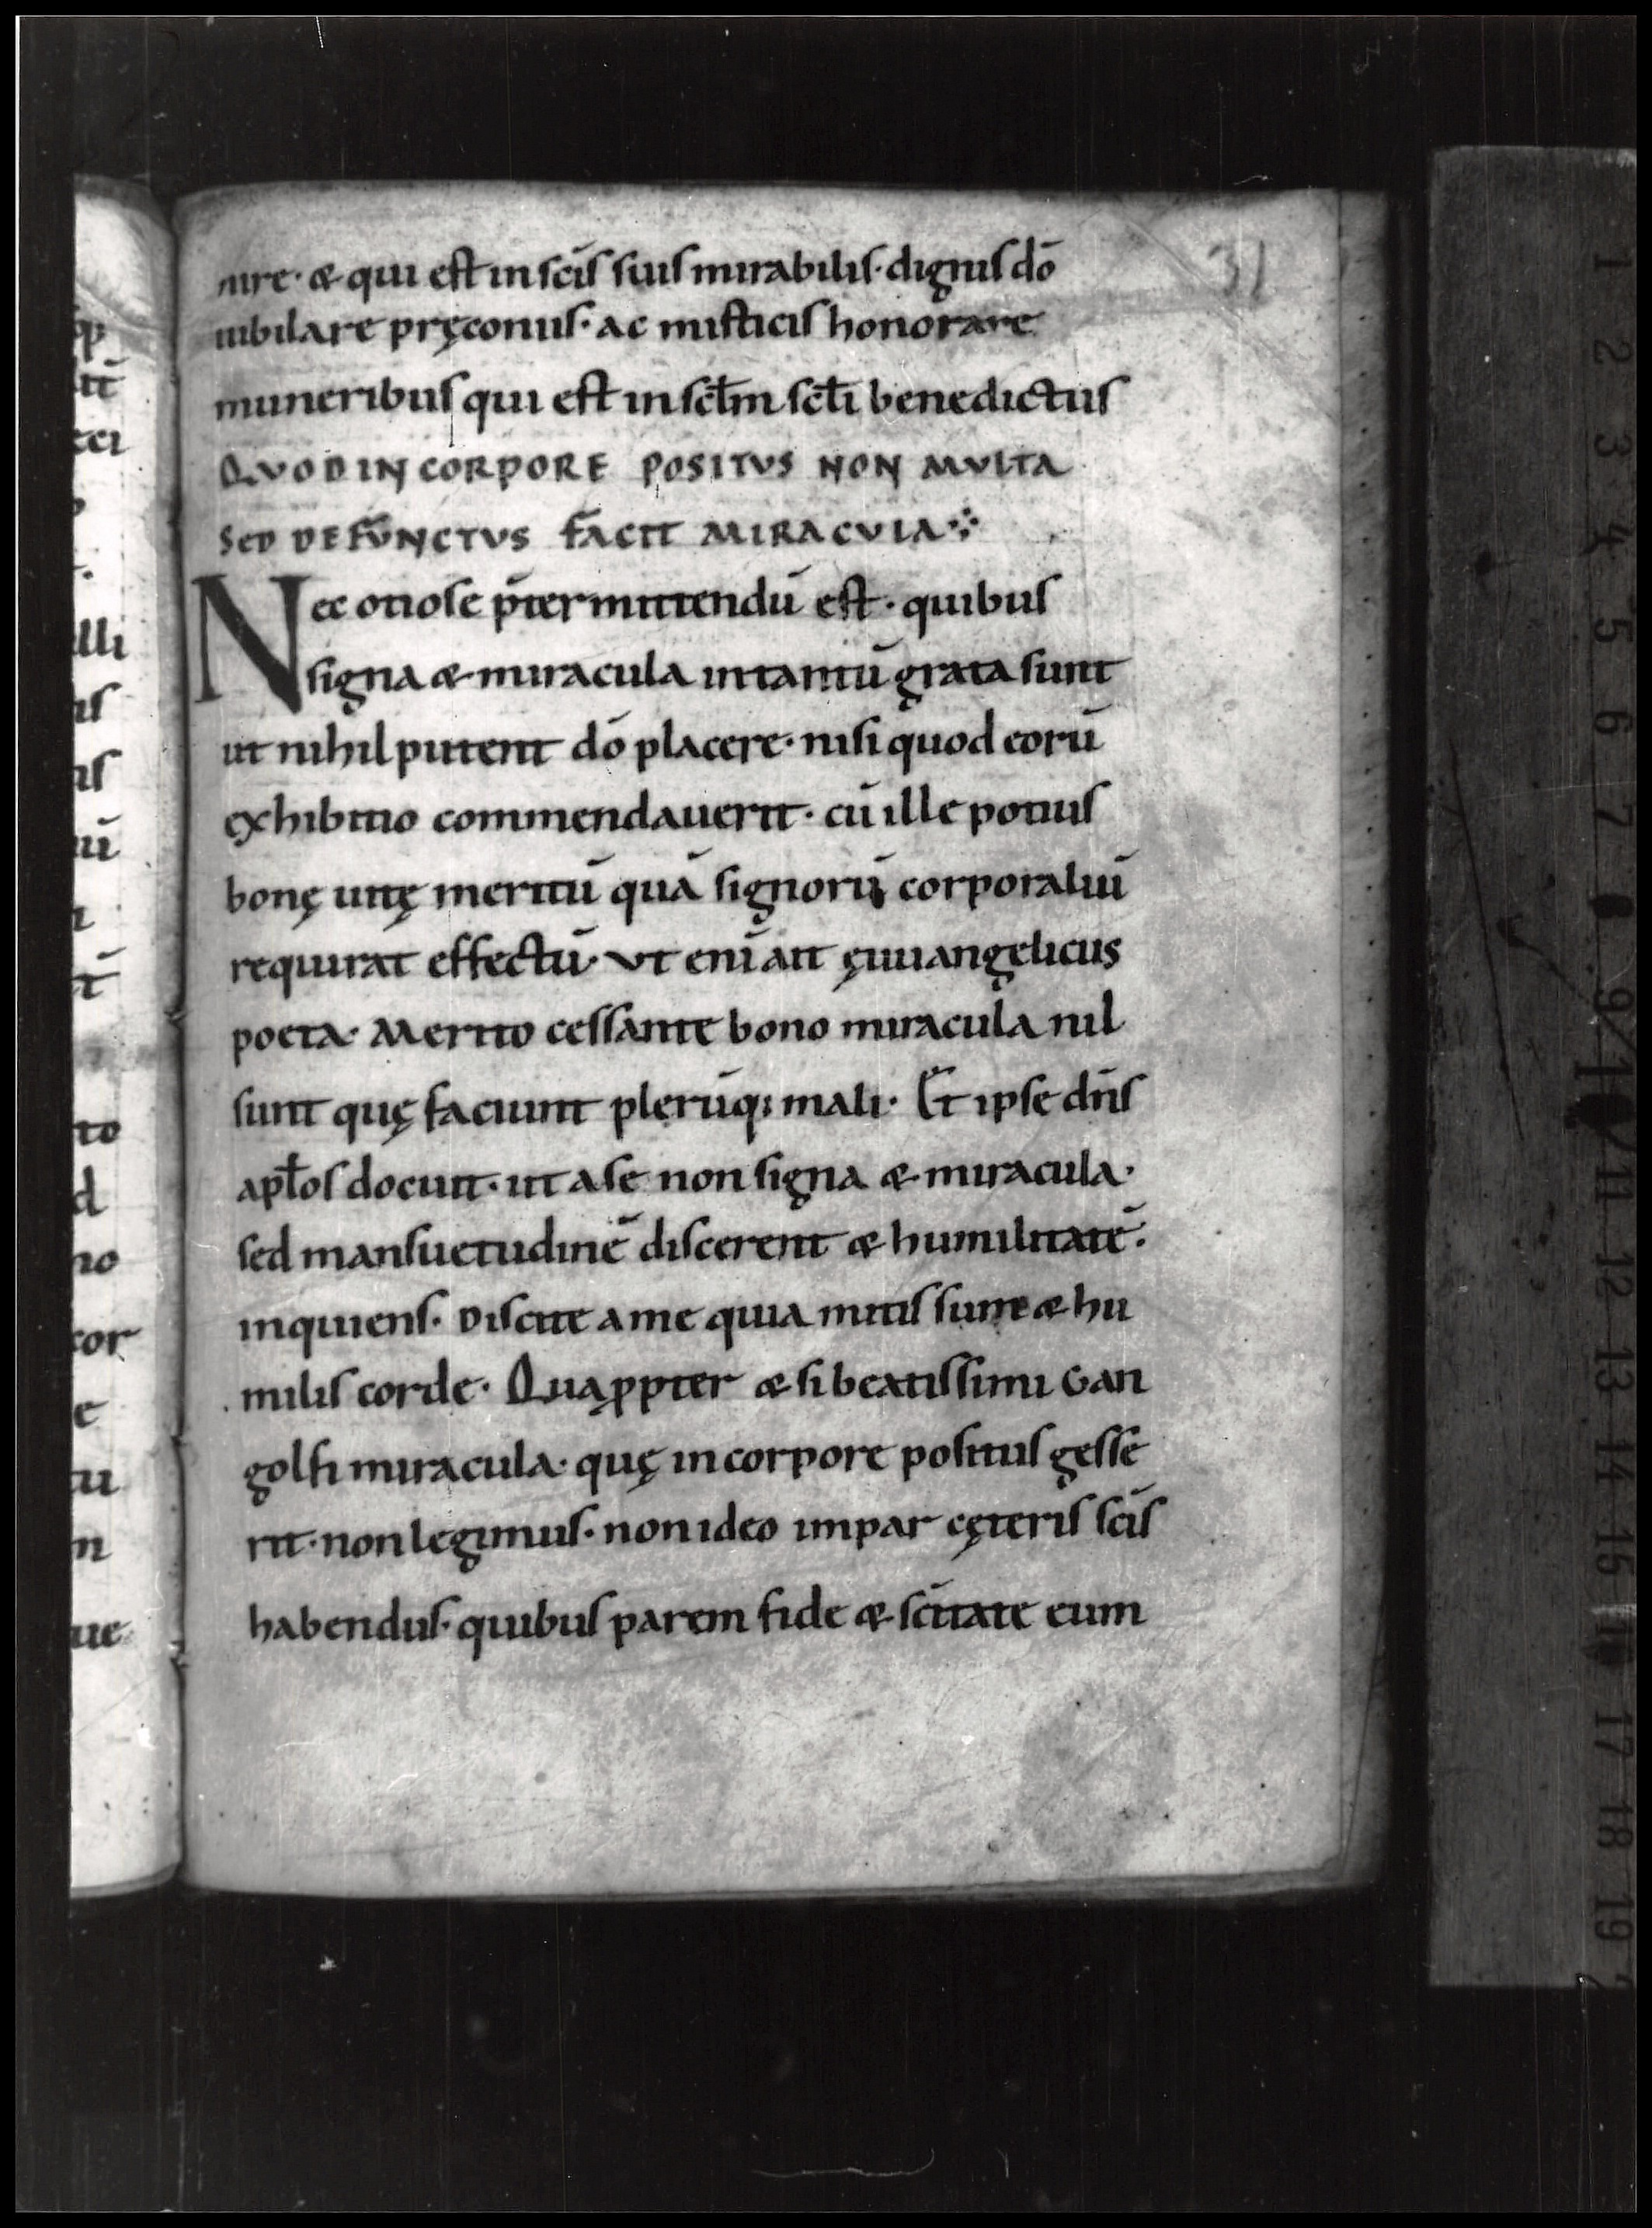 31
nire· & qui est in scīs suis mirabilis· dignis dō
iubilare pręconiis· ac misticis honorare
muneribus qui est in sclm scli benedictus
QVOD IN CORPORE POSITVS NON MVLTA
SED DEFVNCTVS FACIT MIRACVLA
Nec otiose p̄termittendū est· quibus
signa & miracula intantū grata sunt
ut nihil putent dō placere· nisi quod eorū
exhibitio commendauerit· cū ille potius
bonę uitę meritū quā signorū corporaliū
requirat effectū· Vt enī ait ęuuangelicus
poeta· Merito cessante bono miracula nil
sunt quę faciunt plerūq; mali· Et ipse dn̄s
aplos docuit· ut a se non signa & miracula·
sed mansuetudinē discerent & humilitatē·
inquiens· Discite a me quia mitis sum & hu
milis corde· Quaꝓpter & si beatissimi Gan
golfi miracula· quę in corpore positus gesse
rit· non legimus· non ideo impar cęteris scīs
habendus· quibus parem fide & scītate eum
1 2 3 4 5 6 7 8 9 10 11 12 13 14 15 16 17 18 19